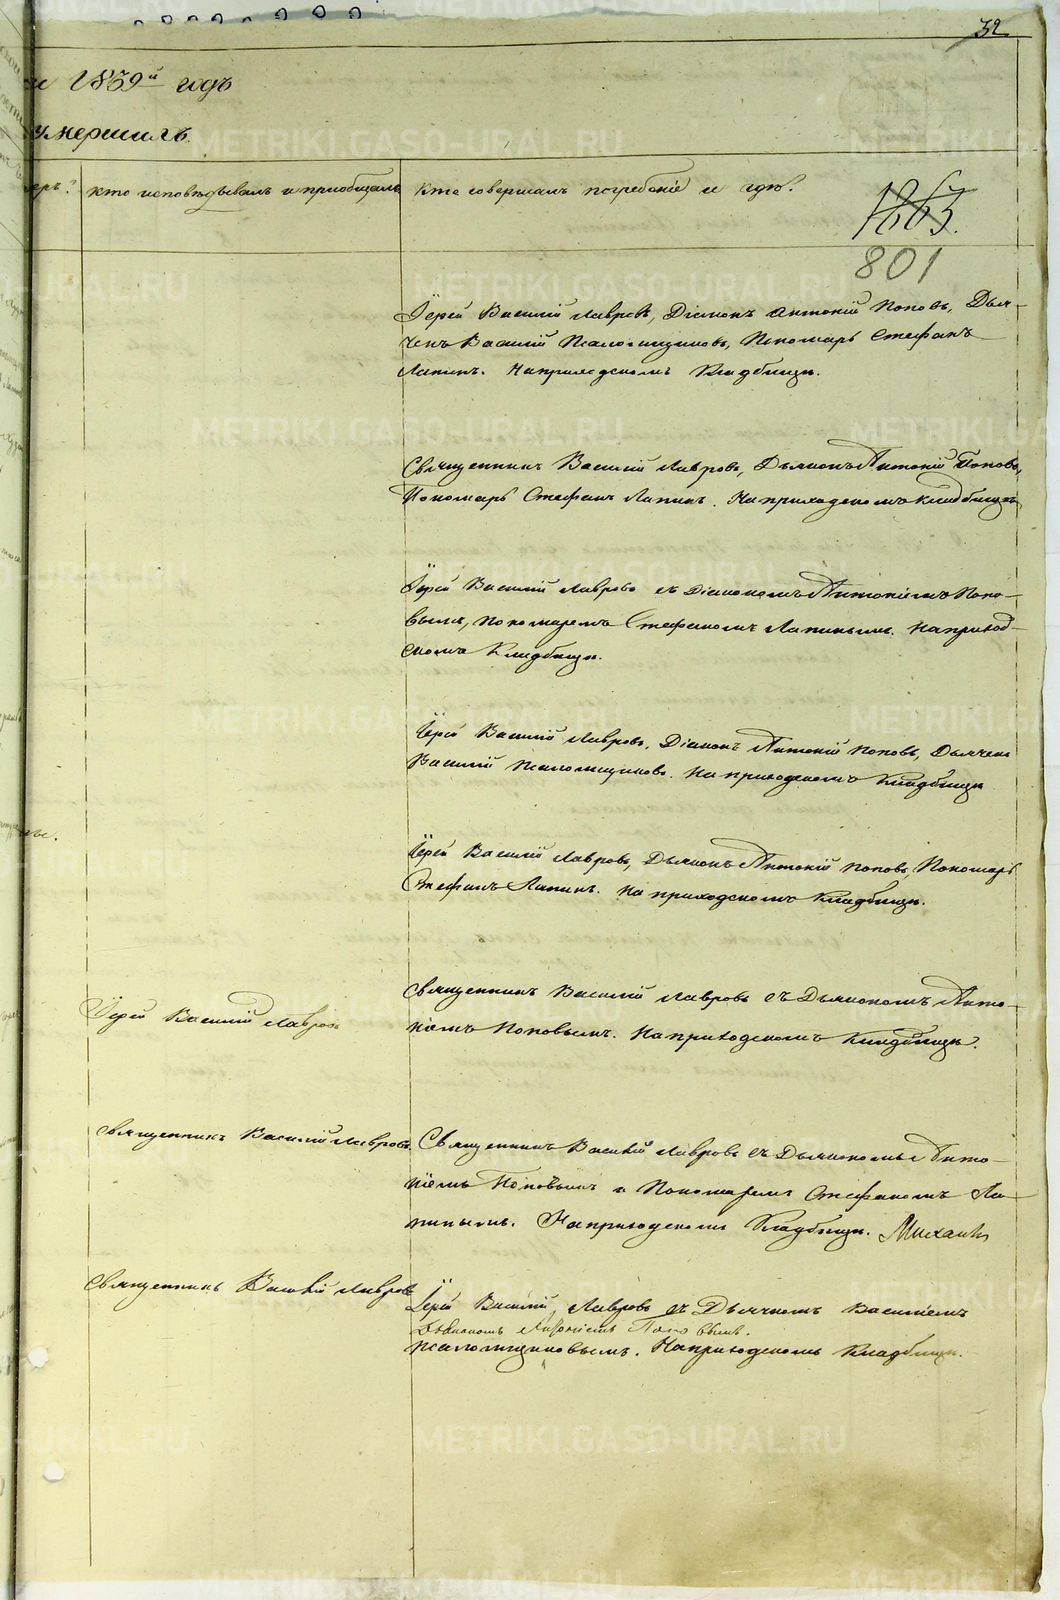 32
1839й годъ
умершихъ.
кто исповѣдывалъ и приобщалъ
кто совершалъ погребенiе и гдѣ?
1863.
801
Іерей Василій Лавровъ, Діаконъ Антоній Поповъ, Дьяч-
чекъ Василій Псаломщиковъ, Пономарь Стефанъ
Лапинъ. На приходскомъ Кладбищѣ.
Священникъ Василій Лавровъ, Дьяконъ Антоній Поповъ,
Пономарь Стефанъ Лапинъ. На приходскомъ кладбищѣ
Іерей Василій Лавровъ съ Діакономъ Антоніемъ Попо-
вымъ, пономаремъ Стефаномъ Лапинымъ. На приход-
скомъ Кладбищѣ.
Іерей Василій Лавровъ, Діаконъ Антоній Поповъ, Дьячекъ
Василій Псаломщиковъ. На приходскомъ Кладбищѣ
Іерей Василій Лавровъ, Дьяконъ Антоній Поповъ, Пономарь
Стефанъ Лапинъ. На приходскомъ Кладбищѣ.
Іерей Василій Лавровъ
Священникъ Василій Лавровъ съ Дьякономъ Анто-
ніемъ Поповымъ. На приходскомъ Кладбищѣ.
Священникъ Василій Лавровъ.
Священникъ Василій Лавровъ съ Дьякономъ Анто-
ніемъ Поповымъ и Пономаремъ Стефаномъ Ла-
пинымъ. На приходскомъ Кладбищѣ.
Священникъ Василій Лавровъ
Іерей Василій Лавровъ съ Дьячкомъ Василіемъ
Дьякономъ Антоніемъ Поповымъ.
Псаломщиковымъ. На приходскомъ Кладбищѣ.
METRIKI.GASO-URAL.RU